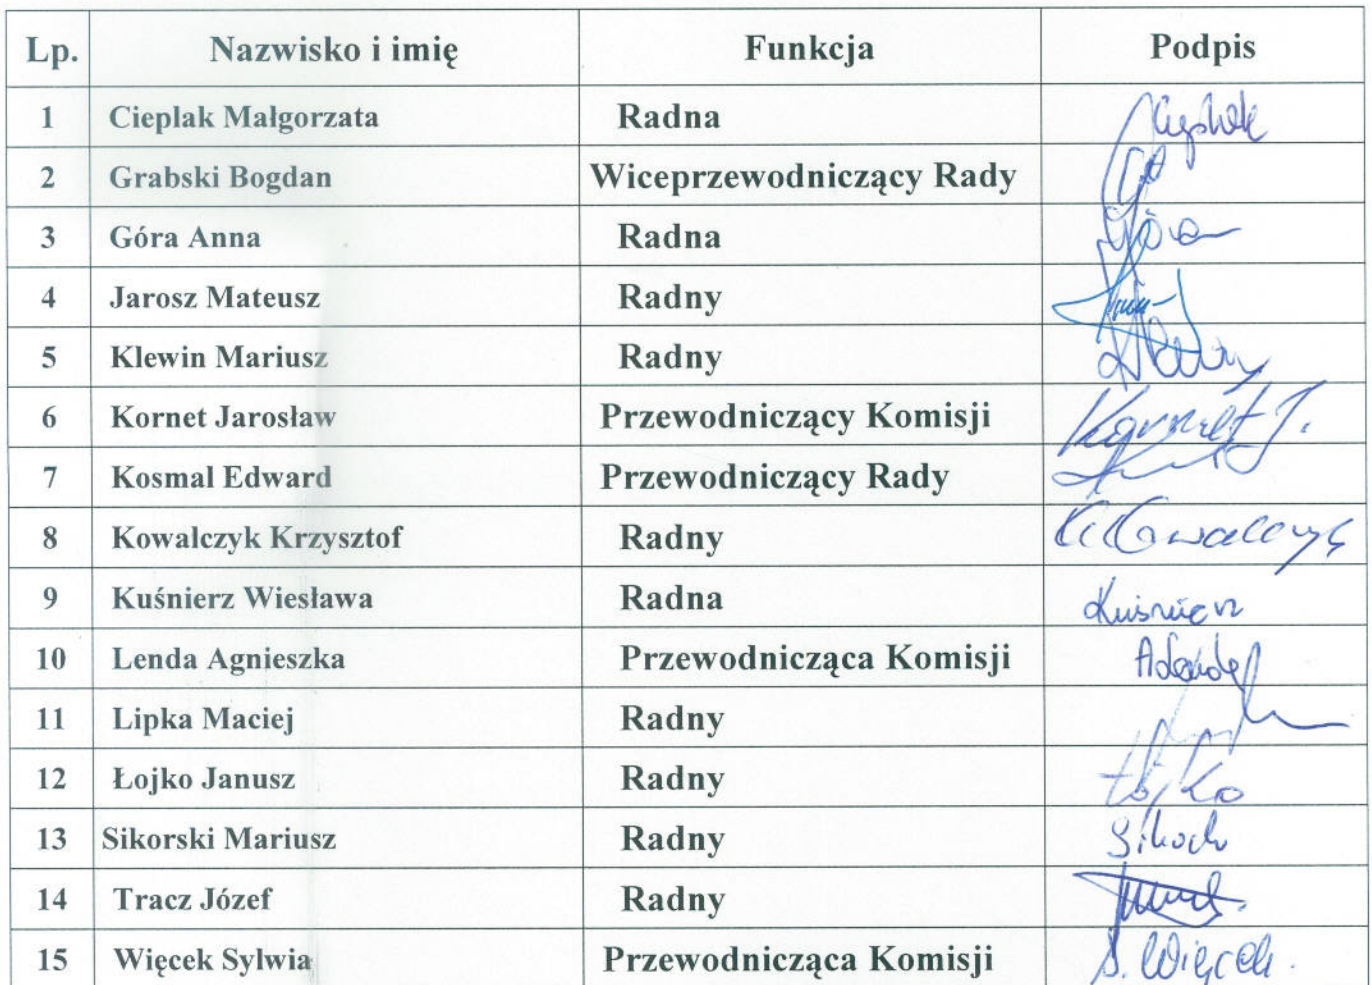 Lp. Nazwisko i imię Funkcja Podpis
1 Cieplak Małgorzata Radna
2 Grabski Bogdan Wiceprzewodniczący Rady
3 Góra Anna Radna Góra
4 Jarosz Mateusz Radny
5 Klewin Mariusz Radny
6 Kornet Jarosław Przewodniczący Komisji Kornet J.
7 Kosmal Edward Przewodniczący Rady
8 Kowalczyk Krzysztof Radny K Kowalczyk
9 Kuśnierz Wiesława Radna Kuśnierz
10 Lenda Agnieszka Przewodnicząca Komisji ALenda
11 Lipka Maciej Radny
12 Łojko Janusz Radny Łojko
13 Sikorski Mariusz Radny
14 Tracz Józef Radny
15 Więcek Sylwia Przewodnicząca Komisji S. Więcek